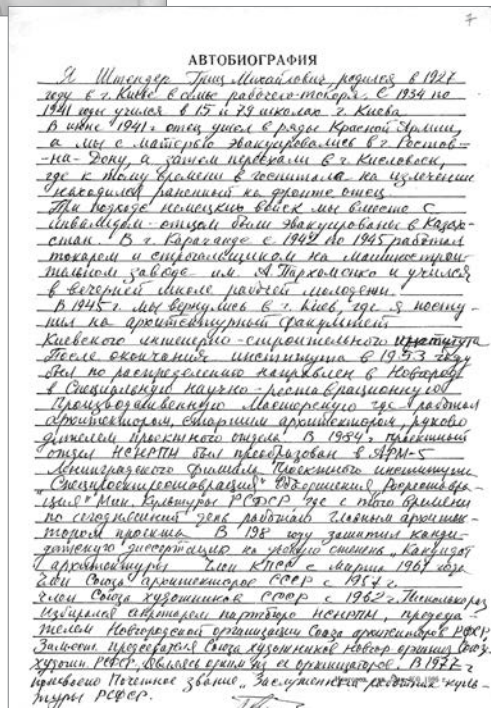 7
АВТОБИОГРАФИЯ
Я Штендер Григ Михайлович, родился в 1927
году в г. Киеве в семье рабочего-токаря. С 1934 по
1941 годы учился в 15 и 79 школах г. Киева
В июне 1941 г. отец ушел в ряды Красной Армии,
а мы с матерью эвакуировались в г. Ростов-
-на-Дону, а затем переехали в г. Кисловодск,
где к тому времени в госпитале на излечении
находился раненный на фронте отец.
При подходе немецких войск мы вместе с
инвалидом-отцом были эвакуированы в Казах-
стан. В г. Караганде с 1942 по 1945 работал
токарем и строгальщиком на машинострои-
тельном заводе им. А. Пархоменко и учился
в вечерней школе рабочей молодежи.
В 1945 г. мы вернулись в г. Киев, где я посту-
пил на архитектурный факультет
Киевского инженерно-строительного института
После окончания института в 1953 году
был по распределению направлен в Новгород
в Специальную научно-реставрационную
Производственную Мастерскую где работал
архитектором, старшим архитектором, руково-
дителем проектного отдела. В 1984 г. проектный
отдел НСНРПМ был преобразован в АРМ-5
Ленинградского филиала Проектного института
"Спецпроектреставрация" Объединения Росреставра-
ция" Мин. Культуры РСФСР, где с того времени
по сегодняшний день работаю главным архитек-
тором проекта. В 198 году защитил канди-
датскую диссертацию на ученую степень "Кандидат
архитектуры". Член КПСС с марта 1967 года
Член Союза архитекторов СССР с 1957 г.
член Союза художников СССР с 1962 г. Несколько раз
избирался секретарем партбюро НСНРПМ, председа-
телем Новгородской организации Союза архитекторов РСФСР
Заместит. председателя Союза художников Новгор. организ. Союз.
художн. РСФСР, являясь одним из ее организаторов. В 1977 г.
присвоено Почетное звание "Заслуженный работник куль-
туры РСФСР.